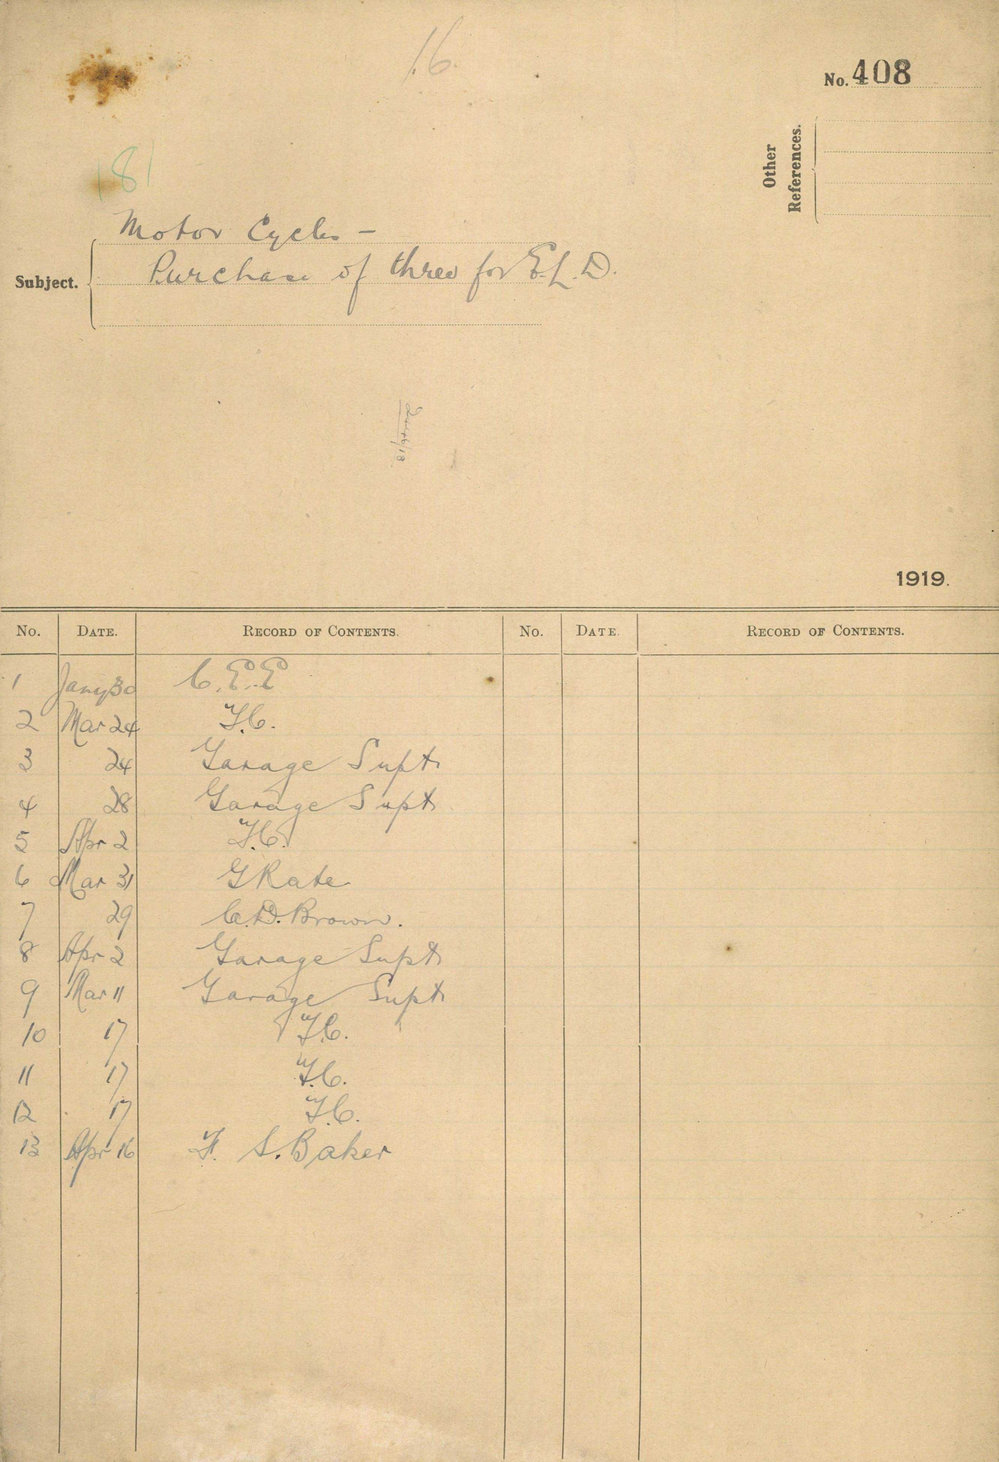 16.
No. 408
Other
References.
(8)
Motor Cycles –
Subject.
Purchase of three for E.L.D.
1919.
No. DATE. RECORD OF CONTENTS. No. DATE. RECORD OF CONTENTS.
1 Jany 30 C.E.E
2 Mar 24 T.C.
3 24 Garage Supt
4 28 Garage Supt
5 Apr 2 T.C.
6 Mar 31 G Kate
7 29 C.D. Brown.
8 Apr 2 Garage Supt
9 Mar 11 Garage Supt
10 17 T.C.
11 17 T.C.
12 17 T.C.
13 Apr 16 F. S. Baker